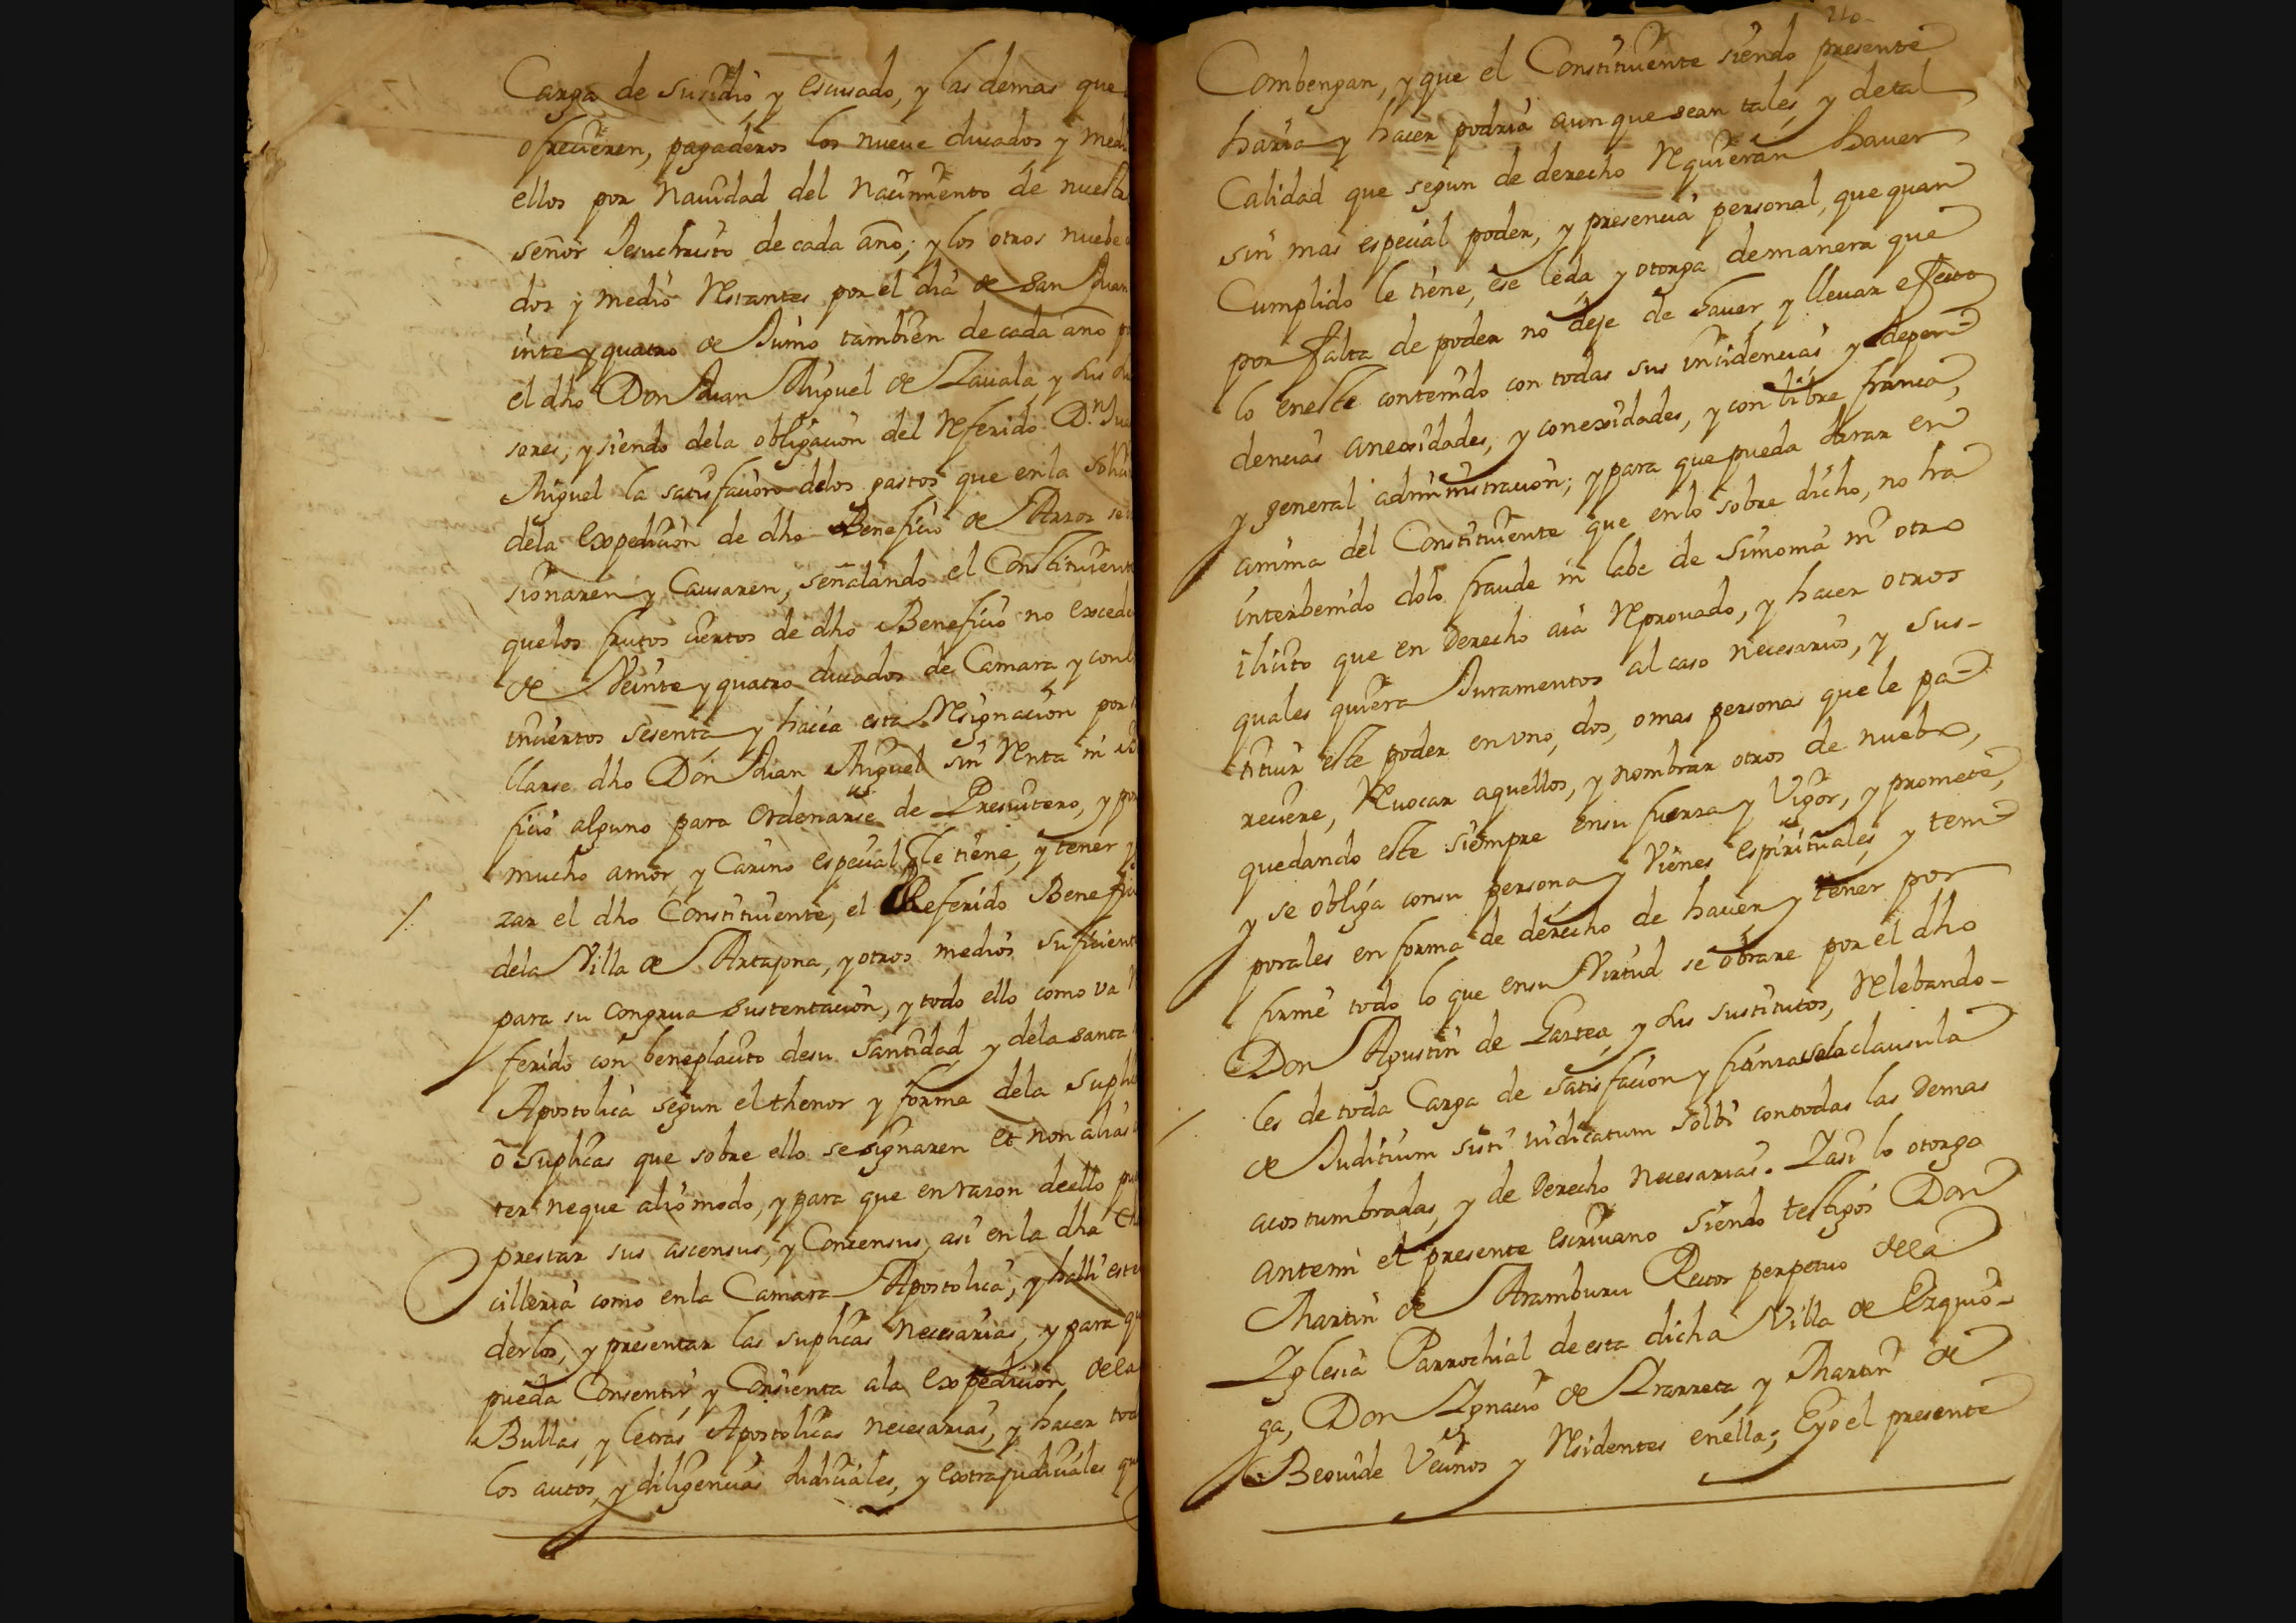 Carga de Susidio y escusado, y las demas que
ofrecieren, pagaderos los nueve ducados y med
ellos por Nauidad del Nacimiento de nuestr
señor Jesuchristo de cada año; y los otros nuebe
dos y medio Restantes por el dia de San Juan
inte y quatro de Junio tambien de cada año p
el dho Don Juan Miguel de Zauala y sus
sores; y siendo dela obligacion del Referido Dn. Jua
Miguel la satisfacion delos gastos que en la
dela expedicion de dho Beneficio de
sionaren y Causaren, señalando el Constituient
que los frutos ciertos de dho Beneficio no exced
de Veinte y quatro ducados de Camara y con
inciertos sesenta y hacía esta Resignacion por
llarse dho Don Juan Miguel sin Renta ni
ficio alguno para Ordenarse de Presuitero, y por
mucho amor, y Carino especial q le tiene, y tener
zar el dho Constituiente, el Referido Benefici
dela Villa de Artajona, y otros medios suficient
para su congrua sustentacion, y todo ello como va
ferido con beneplacito desu Santidad, y dela santa
Apostolica segun el thenor y forma dela Supli
ó Suplicas que sobre ello se signaren et non alias
ter neque alio modo, y para que en razon deello pu
prestar sus ascensus, y Concensus, asi en la dha
cilleria como en la Camara Apostolica, y halli
derlos, y presentar las suplicas necesarias, y para qu
pueda Consentir, y Consienta ala expedicion dela
Bullas, y letras Apostolicas necesarias, y hacer tod
los autos, y diligencias Judiciales, y extrajudiciales qu
210-
Combengan, y que el Constituiente siendo presente
haria y hacer podria aunque sean tales, y detal
Calidad que segun de derecho Requieran hauer
sin mas especial poder, y presencia personal, que quan
Cumplido le tiene, ese le da, y otorga demanera que
por falta de poder no deje de hauer, y lleuar effecto
lo eneste contenido con todas sus incidencias y depen
dencias anexidades, y conexidades, y con libre franca,
y general administracion; y para que pueda Jurar en
anima del Constituiente que en lo sobre dicho, no ha
interbenido dolo fraude ni labe de Simonia ni otro
ilicito que en Derecho aia Reprouado, y hacer otros
quales quiera Juramentos al caso necesarios, y Sus-
tituir este poder en vno, dos, o mas personas que le pa
reciere, Reuocar aquellos, y nombrar otros de nuebo,
quedando este siempre ensu fuerza y Vigor, y promete,
y se obliga consu persona y Vienes espirituales, y tem
porales en forma de derecho de hauer y tener por
firme todo lo que ensu Virtud se obrare por el dho
Don Agustin de Gartea, y sus sustitutos, Relebando-
les de toda Carga de satisfacion y fianza sola clausula
de Juditium sisti iudicatum solbi con todas las Demas
acostumbradas, y de Derecho Necesarias. Y asi lo otorga
antemi el presente escriuano siendo testigos Don
Martin de Aramburu Rector perpetuo dela
Yglesia Parrochial de esta dicha Villa de Ezquio-
ga, Don Ygnacio de Yrarreta, y Martin de
Beouide Vecinos y Residentes en ella; E yo el presente